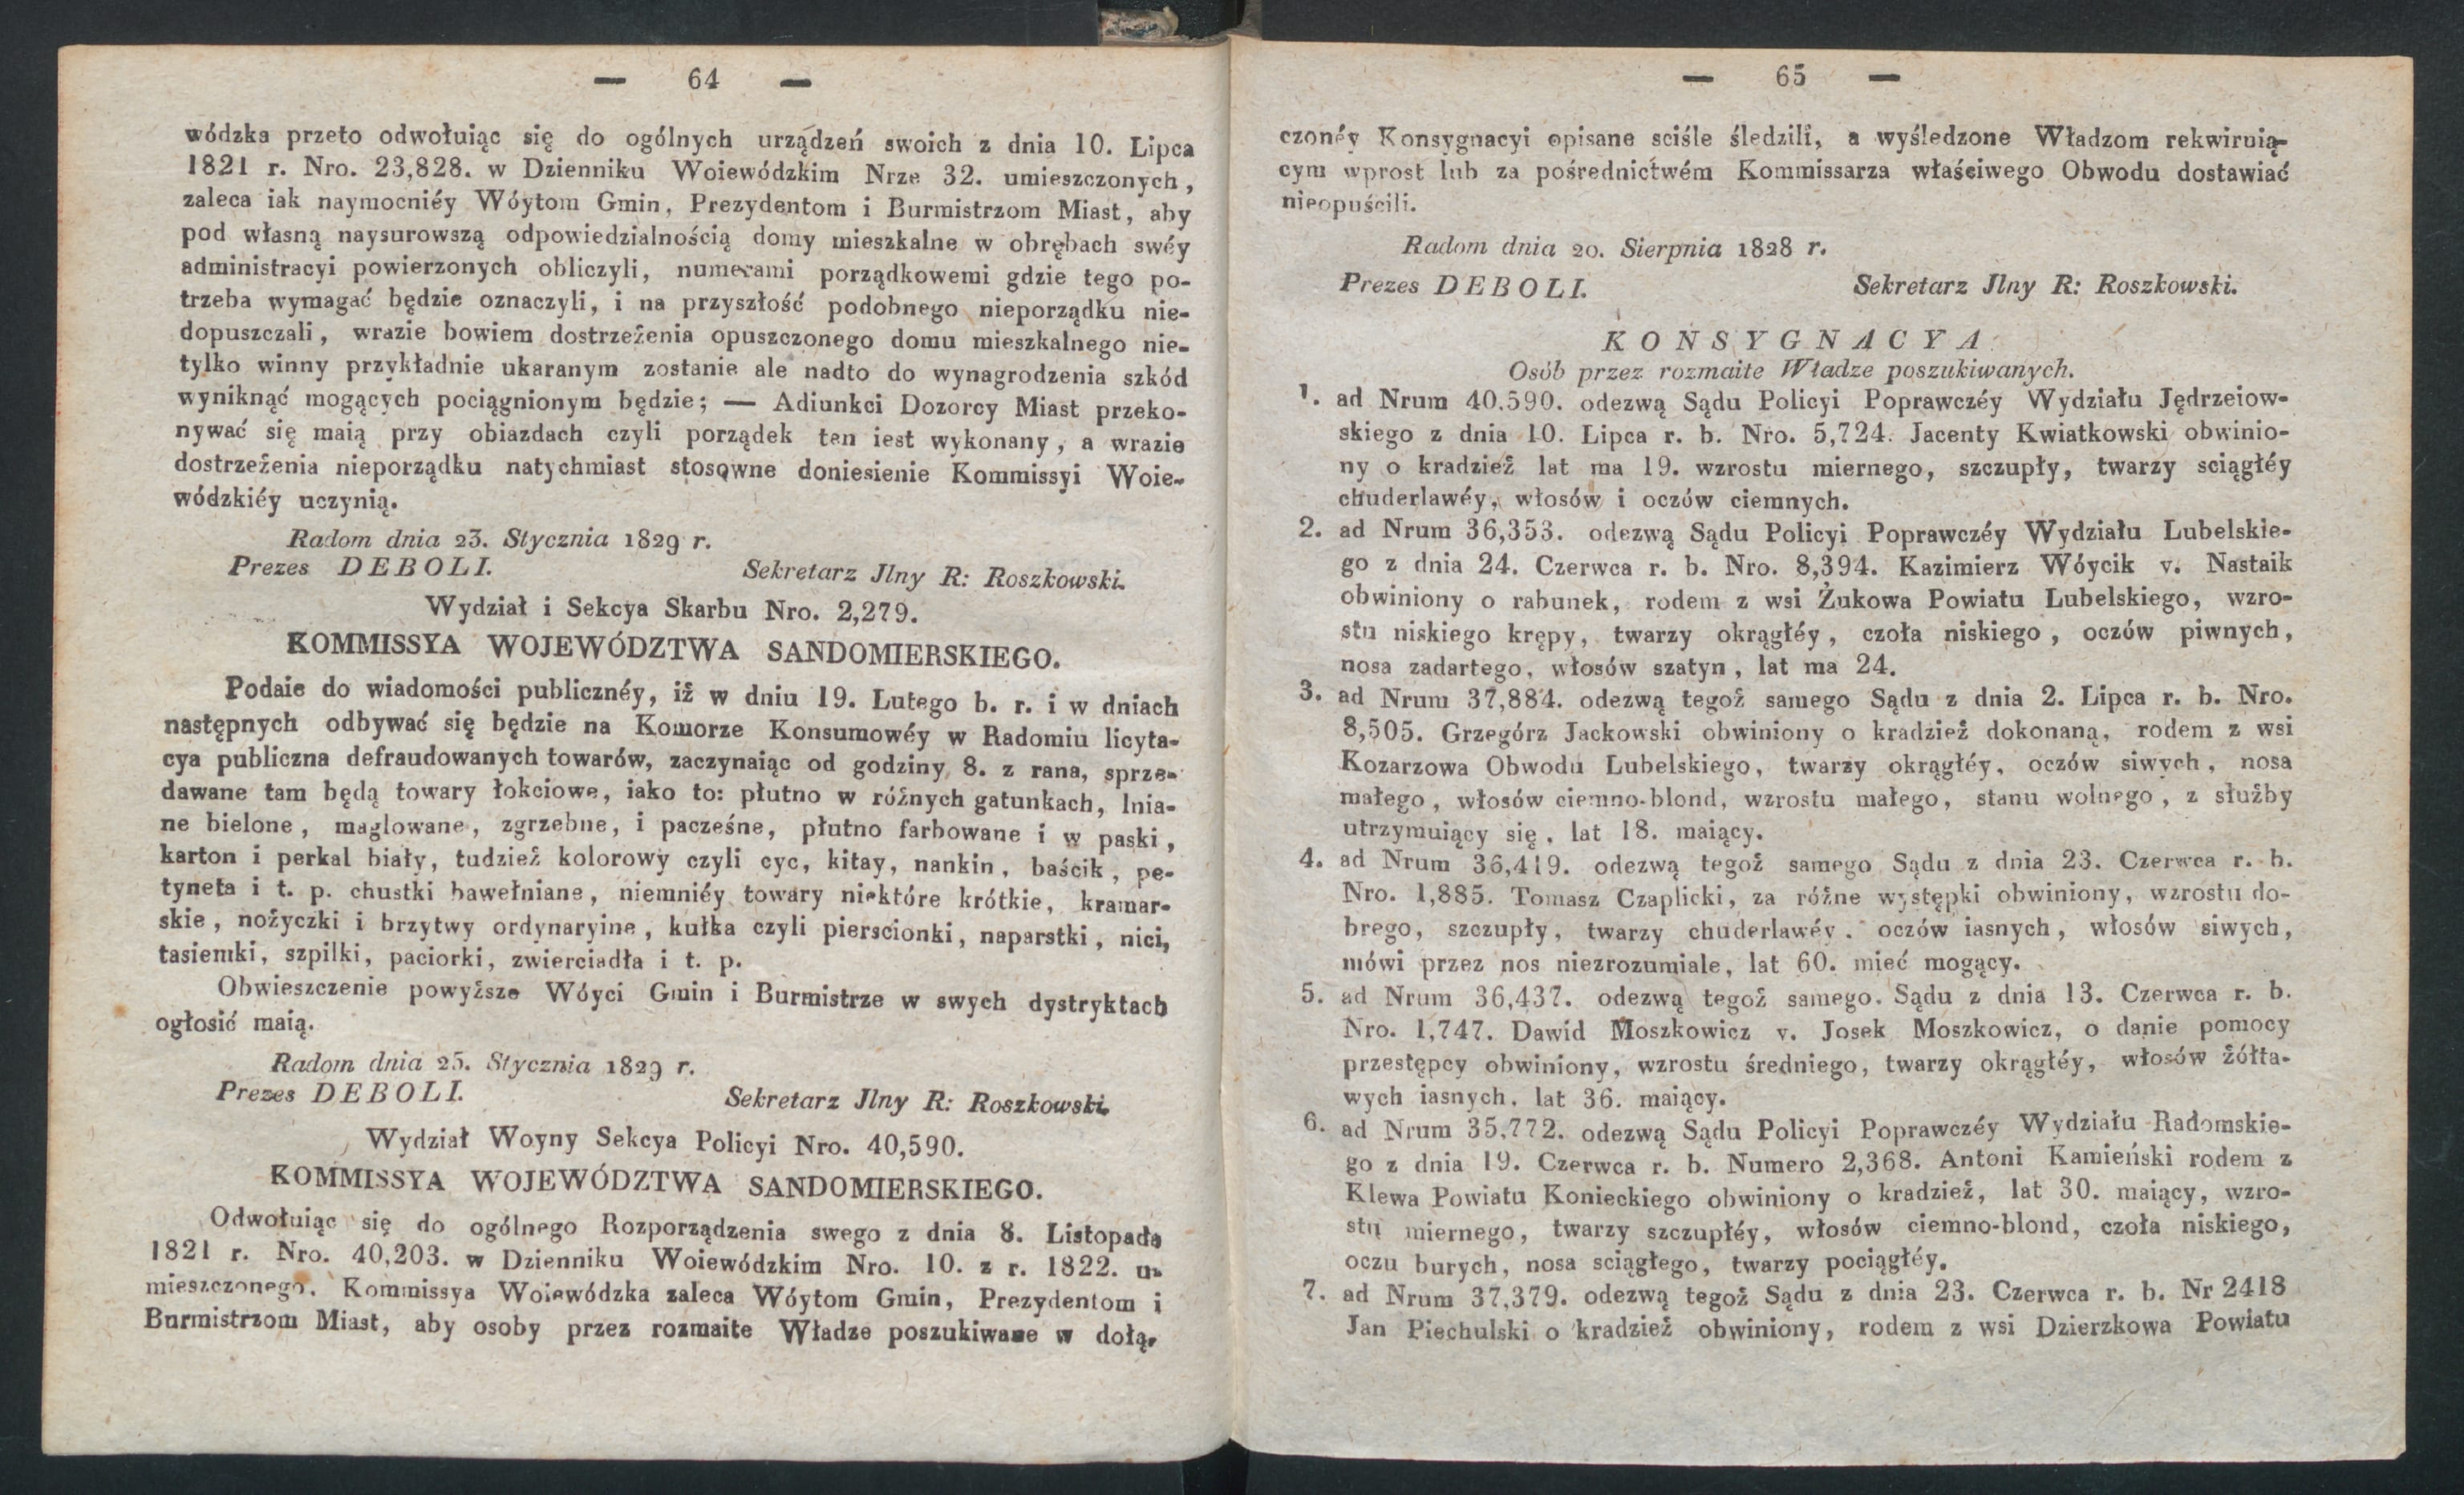 — 64 —
wódzka przeto odwołuiąc się do ogólnych urządzeń swoich z dnia 10. Lipca
1821 r. Nro. 23,828. w Dzienniku Woiewódzkim Nrze 32. umieszczonych,
zaleca iak naymocniéy Wóytom Gmin, Prezydentom i Burmistrzom Miast, aby
pod własną naysurowszą odpowiedzialnością domy mieszkalne w obrębach swéy
administracyi powierzonych obliczyli, numerami porządkowemi gdzie tego po-
trzeba wymagać będzie oznaczyli, i na przyszłość podobnego nieporządku nie-
dopuszczali, wrazie bowiem dostrzeżenia opuszczonego domu mieszkalnego nie-
tylko winny przykładnie ukaranym zostanie ale nadto do wynagrodzenia szkód
wyniknąć mogących pociągnionym będzie; — Adiunkci Dozorcy Miast przeko-
nywać się maią przy obiazdach czyli porządek ten iest wykonany, a wrazie
dostrzeżenia nieporządku natychmiast stosowne doniesienie Kommissyi Woie-
wódzkiéy uczynią.
Radom dnia 23. Stycznia 1829 r.
Prezes DEBOLI. Sekretarz Jlny R: Roszkowski.
Wydział i Sekcya Skarbu Nro. 2,279.
KOMMISSYA WOJEWÓDZTWA SANDOMIERSKIEGO.
Podaie do wiadomości publicznéy, iż w dniu 19. Lutego b. r. i w dniach
następnych odbywać się będzie na Komorze Konsumowéy w Radomiu licyta-
cya publiczna defraudowanych towarów, zaczynaiąc od godziny 8. z rana, sprze-
dawane tam będą towary łokciowe, iako to: płutno w różnych gatunkach, lnia-
ne bielone, maglowane, zgrzebne, i pacześne, płutno farbowane i w paski,
karton i perkal biały, tudzież kolorowy czyli cyc, kitay, nankin, baścik, pe-
tyneta i t. p. chustki bawełniane, niemniéy towary niektóre krótkie, kramar-
skie, nożyczki i brzytwy ordynaryine, kułka czyli pierscionki, naparstki, nici,
tasiemki, szpilki, paciorki, zwierciadła i t. p.
Obwieszczenie powyższe Wóyci Gmin i Burmistrze w swych dystryktach
ogłosić maią.
Radom dnia 25. Stycznia 1829 r.
Prezes DEBOLI. Sekretarz Jlny R: Roszkowski.
Wydział Woyny Sekcya Policyi Nro. 40,590.
KOMMISSYA WOJEWÓDZTWA SANDOMIERSKIEGO.
Odwołuiąc się do ogólnego Rozporządzenia swego z dnia 8. Listopada
1821 r. Nro. 40,203. w Dzienniku Woiewódzkim Nro. 10. z r. 1822. u-
mieszczonego. Kommissya Woiewódzka zaleca Wóytom Gmin, Prezydentom i
Burmistrzom Miast, aby osoby przez rozmaite Władze poszukiwane w dołą-
— 65 —
czonéy Konsygnacyi opisane sciśle śledzili, a wyśledzone Władzom rekwiruią-
cym wprost lub za pośrednictwém Kommissarza właściwego Obwodu dostawiać
nieopuścili.
Radom dnia 20. Sierpnia 1828 r.
Prezes DEBOLI. Sekretarz Jlny R: Roszkowski.
KONSYGNACYA
Osób przez rozmaite Władze poszukiwanych.
1. ad Nrum 40,590. odezwą Sądu Policyi Poprawczéy Wydziału Jędrzeiow-
skiego z dnia 10. Lipca r. b. Nro. 5,724. Jacenty Kwiatkowski obwinio-
ny o kradzież lat ma 19. wzrostu miernego, szczupły, twarzy sciągłéy
chuderlawéy, włosów i oczów ciemnych.
2. ad Nrum 36,353. odezwą Sądu Policyi Poprawczéy Wydziału Lubelskie-
go z dnia 24. Czerwca r. b. Nro. 8,394. Kazimierz Wóycik v. Nastaik
obwiniony o rabunek, rodem z wsi Żukowa Powiatu Lubelskiego, wzro-
stu niskiego krępy, twarzy okrągłéy, czoła niskiego, oczów piwnych,
nosa zadartego, włosów szatyn, lat ma 24.
3. ad Nrum 37,884. odezwą tegoż samego Sądu z dnia 2. Lipca r. b. Nro.
8,505. Grzegórz Jackowski obwiniony o kradzież dokonaną, rodem z wsi
Kozarzowa Obwodu Lubelskiego, twarzy okrągłéy, oczów siwych, nosa
małego, włosów ciemno-blond, wzrostu małego, stanu wolnego, z służby
utrzymuiący się, lat 18. maiący.
4. ad Nrum 36,419. odezwą tegoż samego Sądu z dnia 23. Czerwca r. b.
Nro. 1,885. Tomasz Czaplicki, za różne występki obwiniony, wzrostu do-
brego, szczupły, twarzy chuderlawéy, oczów iasnych, włosów siwych,
mówi przez nos niezrozumiale, lat 60. mieć mogący.
5. ad Nrum 36,437. odezwą tegoż samego. Sądu z dnia 13. Czerwca r. b.
Nro. 1,747. Dawid Moszkowicz v. Josek Moszkowicz, o danie pomocy
przestępcy obwiniony, wzrostu średniego, twarzy okrągłéy, włosów żółta-
wych iasnych, lat 36. maiący.
6. ad Nrum 35,772. odezwą Sądu Policyi Poprawczéy Wydziału Radomskie-
go z dnia 19. Czerwca r. b. Numero 2,368. Antoni Kamieński rodem z
Klewa Powiatu Konieckiego obwiniony o kradzież, lat 30. maiący, wzro-
stu miernego, twarzy szczupłéy, włosów ciemno-blond, czoła niskiego,
oczu burych, nosa sciągłego, twarzy pociągłéy.
7. ad Nrum 37,379. odezwą tegoż Sądu z dnia 23. Czerwca r. b. Nr 2418
Jan Piechulski o kradzież obwiniony, rodem z wsi Dzierzkowa Powiatu